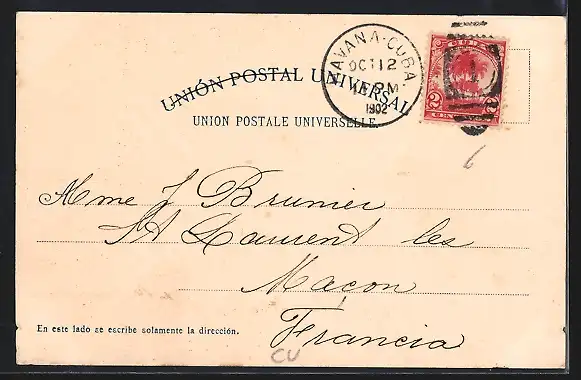 HAVANA-CUBA.
OCT 12
PM
1902
CUBA
2 2
CEN
UNIÓN POSTAL UNIVERSAL
UNION POSTALE UNIVERSELLE
6
Mme J Brunier
St Laurent les
Macon
Francia
En este lado se escribe solamente la dirección.
CU